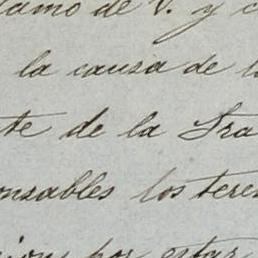 lamo de V. y c
la causa de l
te de la Gra
onsables los tere
por estar